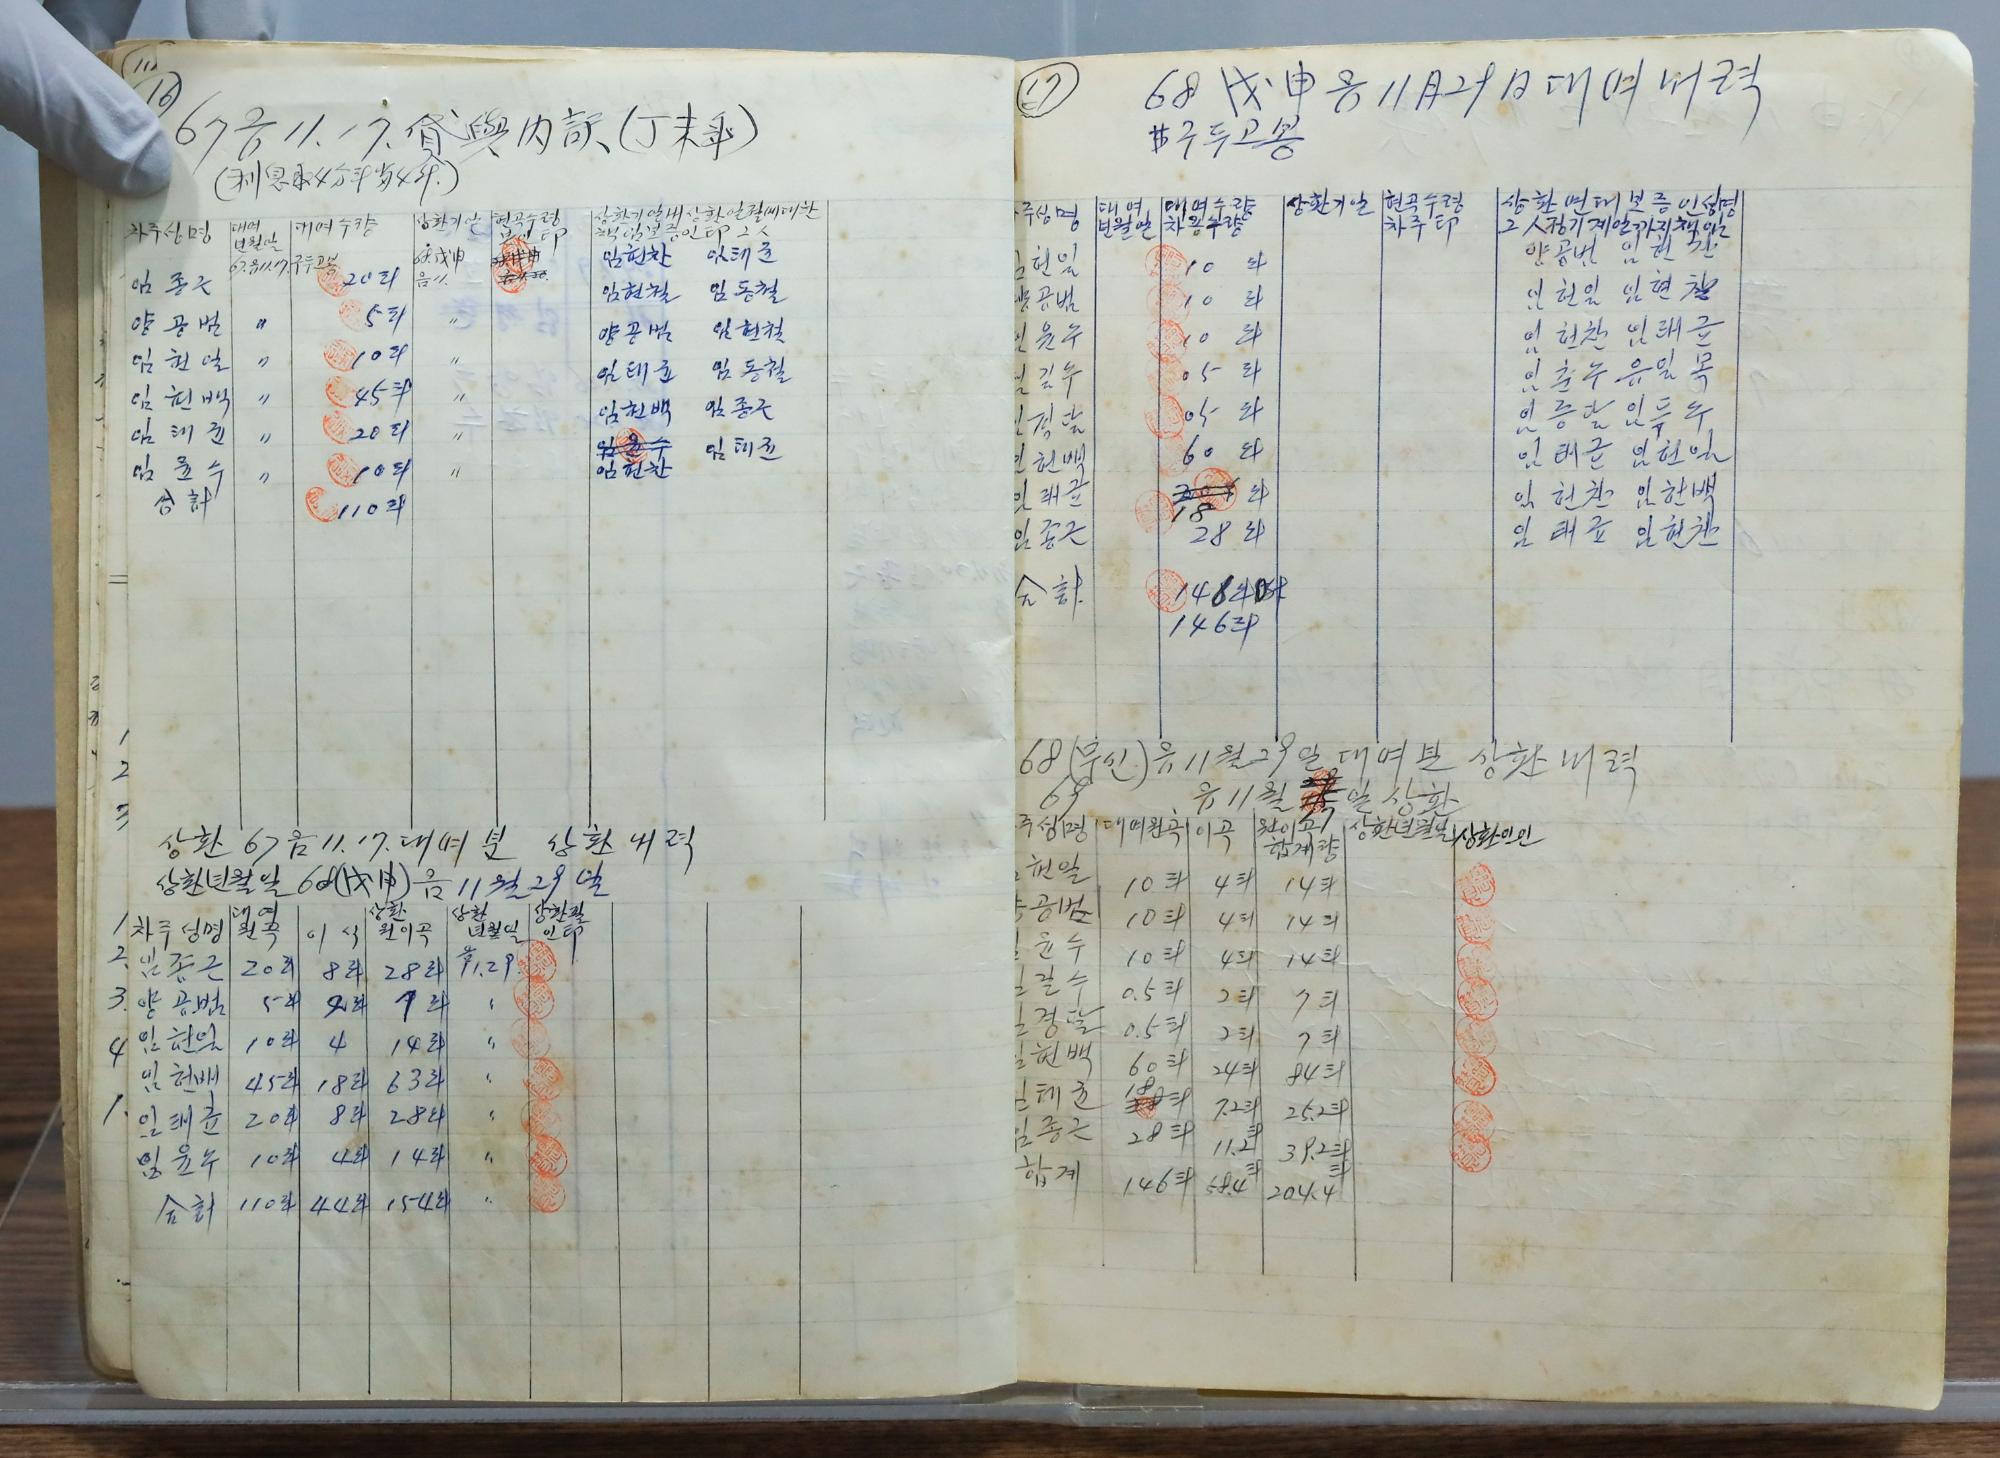 16
67음11.17.貸與內訳(丁未年)
차주성명 대여년월일 대여수량 상환기일
67.음11.17 구두고봉 68.戊申 음11.
임종근 20되 임현찬 임태균
임현철 임동철
양공범 〃 5되 〃 양공범 임현철
임현일 〃 10되 〃 임태균 임동철
임현백 〃 45되 〃 임현백 임종근
임태균 〃 20되 〃 임윤수 임태균
임윤수 〃 10되 〃 임현찬
合計 110되
상환 67음11.17.대여분 상환내력
상환년월일 68(戊申)음11월29일
차주성명 대여원곡 이식 상환원이곡 상환년월일 상환필인印
임종근 20되 8되 28되 음11.29.
양공범 5되 2되 7되 〃
임현일 10되 4 14되 〃
임현백 45되 18되 63되 〃
임태균 20되 8되 28되 〃
임윤수 10되 4되 14되 〃
合計 110되 44되 154되 〃
17
68戊申음11月29日대여내력
#구두고봉
주성명 대여년월일 대여수량 차용수량 상환기일 현곡수령차주印 상환연대보증인성명
현일 10 되 양공범 임현찬
공범 10 되 임현일 임현찰
윤수 10 되 임현찬 임태균
길수 05 되 임춘수 유일목
05 되
현백 60 되 임태균 임현일
태균 18 되 임현찬 임현백
임종근 28 되 임태균 임현찬
合計 148되
146되
68(무신)음11월29일 대여분 상환내력
69 음11월 일 상환
주성명 대여원곡 이곡 원이곡合계량 상환년월일 상환인인
현일 10되 4되 14되
공범 10되 4되 14되
윤수 10되 4되 14되
길수 0.5되 2되 7되
경달 0.5되 2되 7되
현백 60되 24되 84되
임태균 18되 7.2되 25.2되
임종근 28되 11.2되 39.2되
합계 146되 58.4되 204.4되